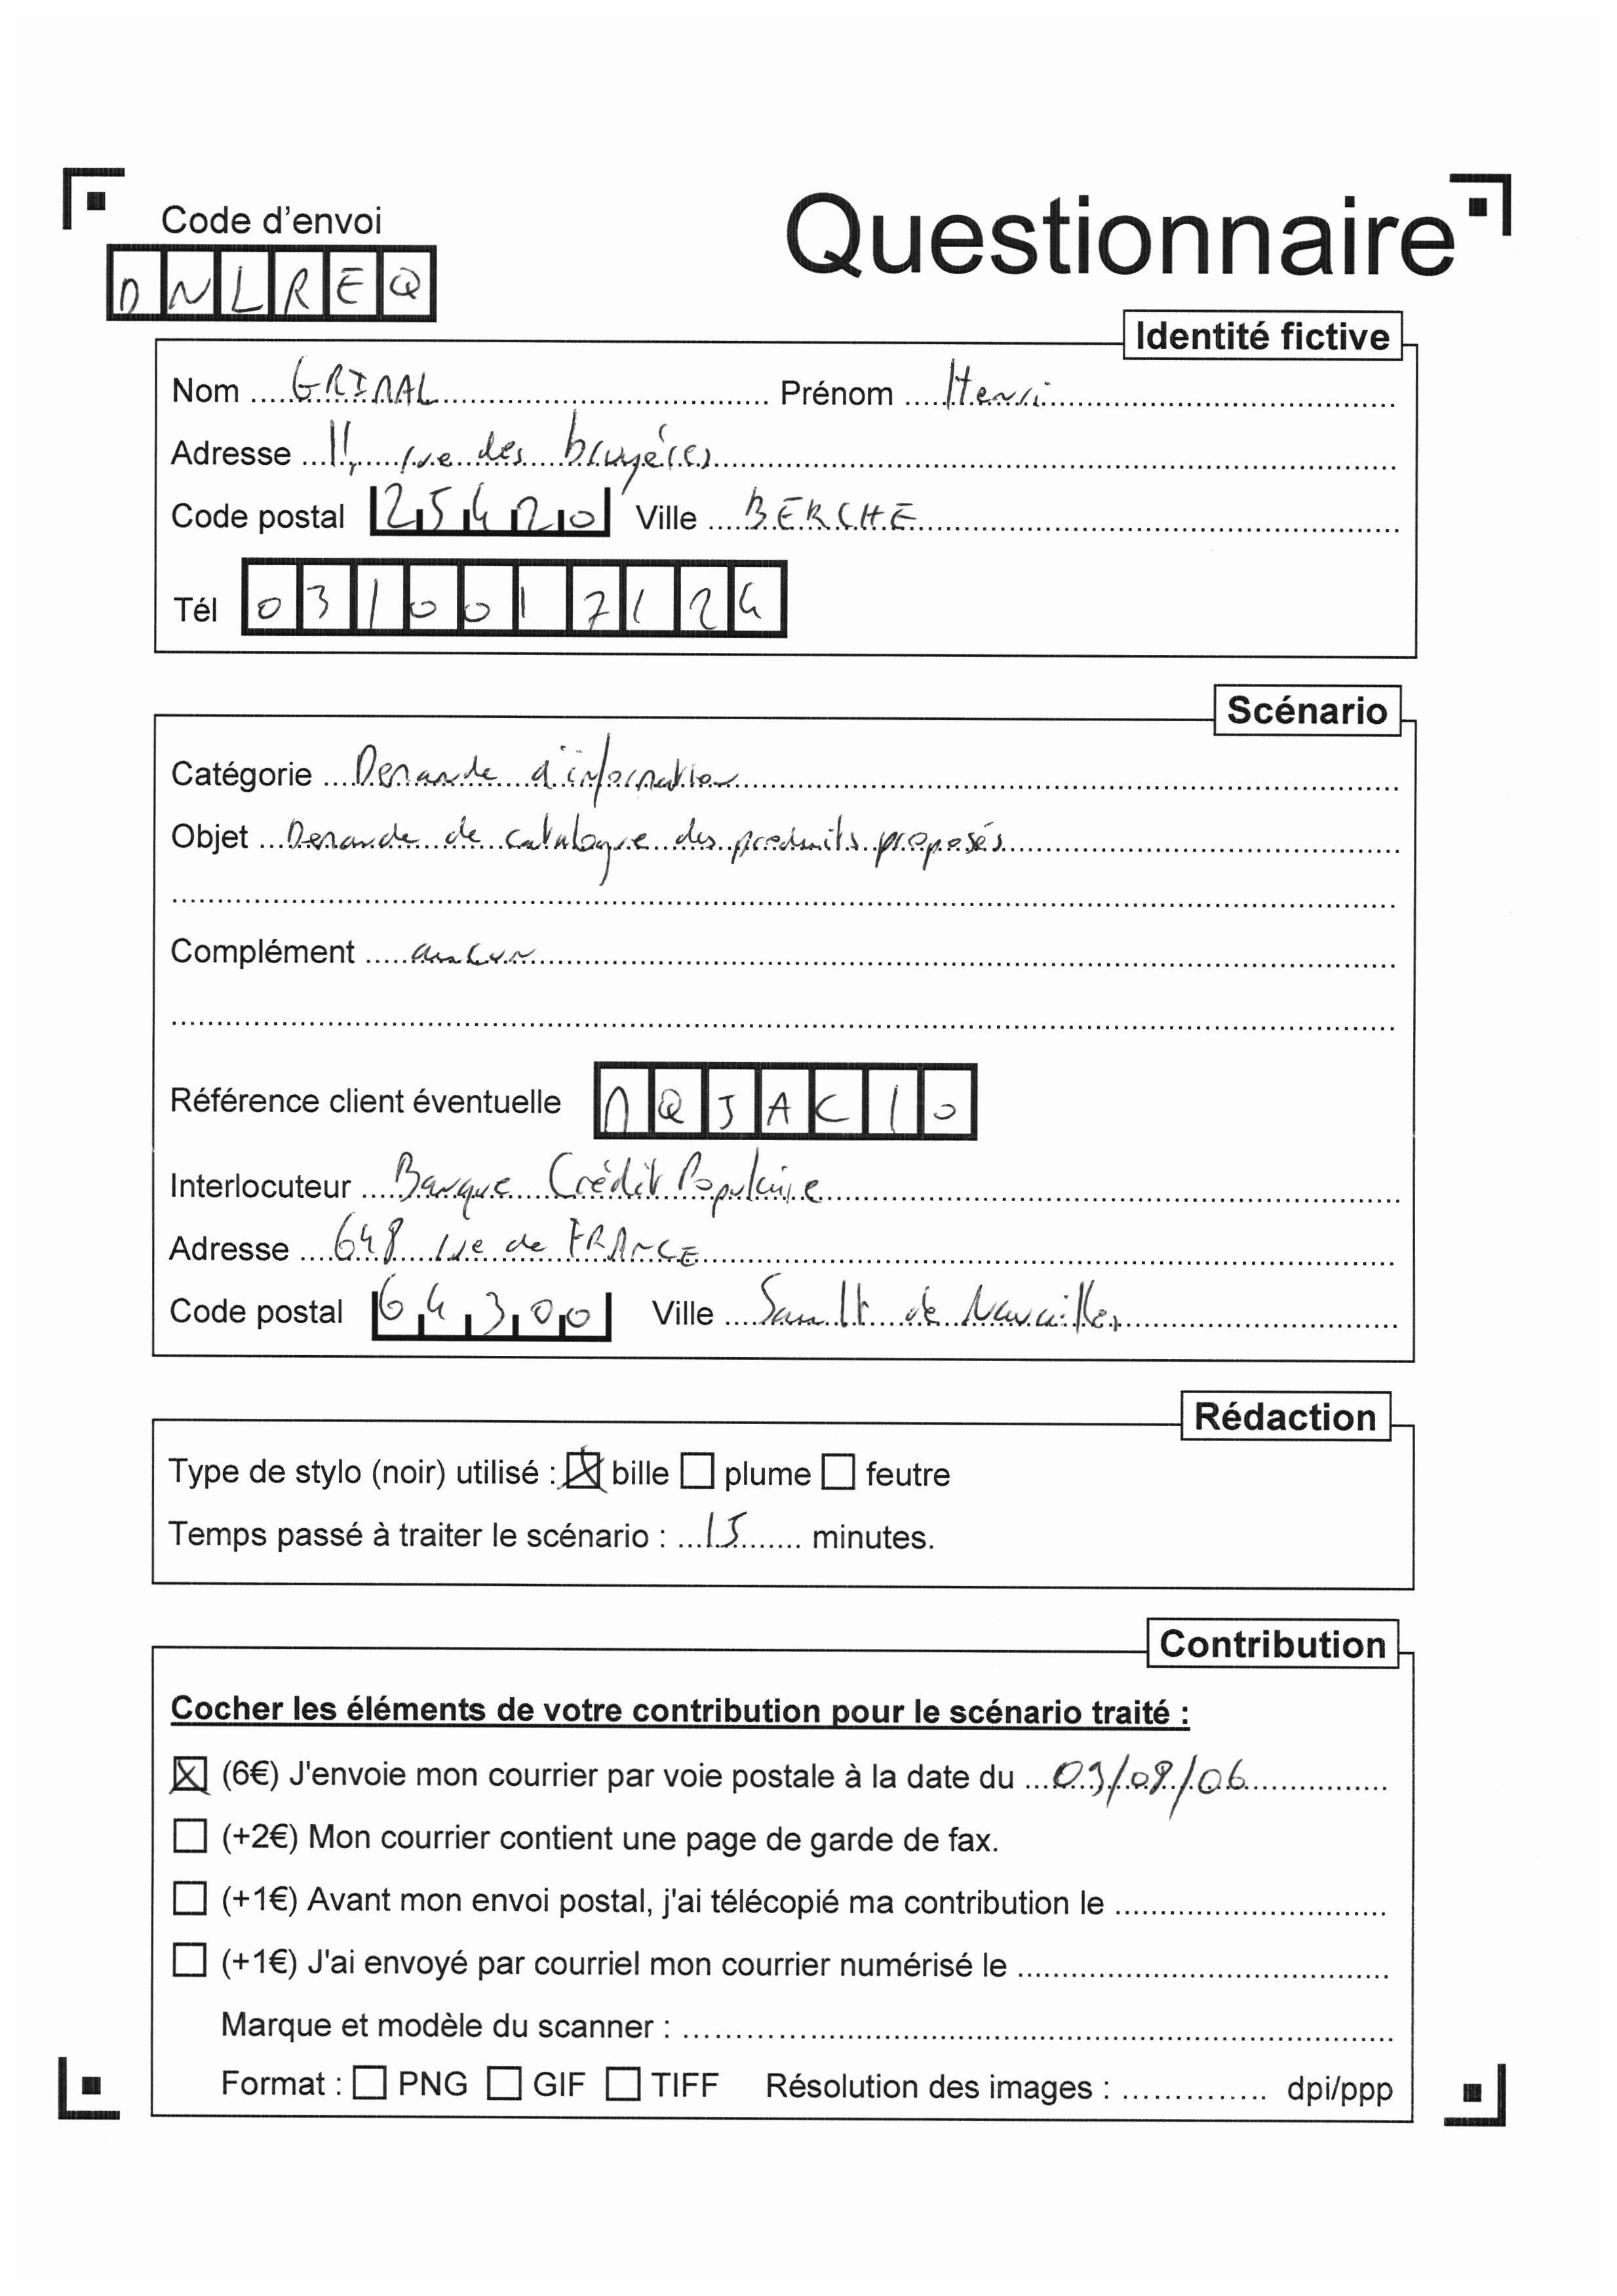 Code d'envoi
Questionnaire
DNLREQ
Identité fictive
Nom GRIMAL Prénom Henri
Adresse 11, rue des bruyères
Code postal 25420 Ville BERCHE
Tél 0310017124
Scénario
Catégorie Demande d'information
Objet Demande de catalogue des produits proposés
Complément aucun
Référence client éventuelle MQJAC10
Interlocuteur Banque Crédit Populaire
Adresse 648 rue de FRANCE
Code postal 64300 Ville Sault de Navailles
Rédaction
Type de stylo (noir) utilisé : bille plume feutre
Temps passé à traiter le scénario : 15 minutes.
Contribution
Cocher les éléments de votre contribution pour le scénario traité :
(6€) J'envoie mon courrier par voie postale à la date du 03/08/06
(+2€) Mon courrier contient une page de garde de fax.
(+1€) Avant mon envoi postal, j'ai télécopié ma contribution le
(+1€) J'ai envoyé par courriel mon courrier numérisé le
Marque et modèle du scanner :
Format : PNG GIF TIFF Résolution des images : dpi/ppp